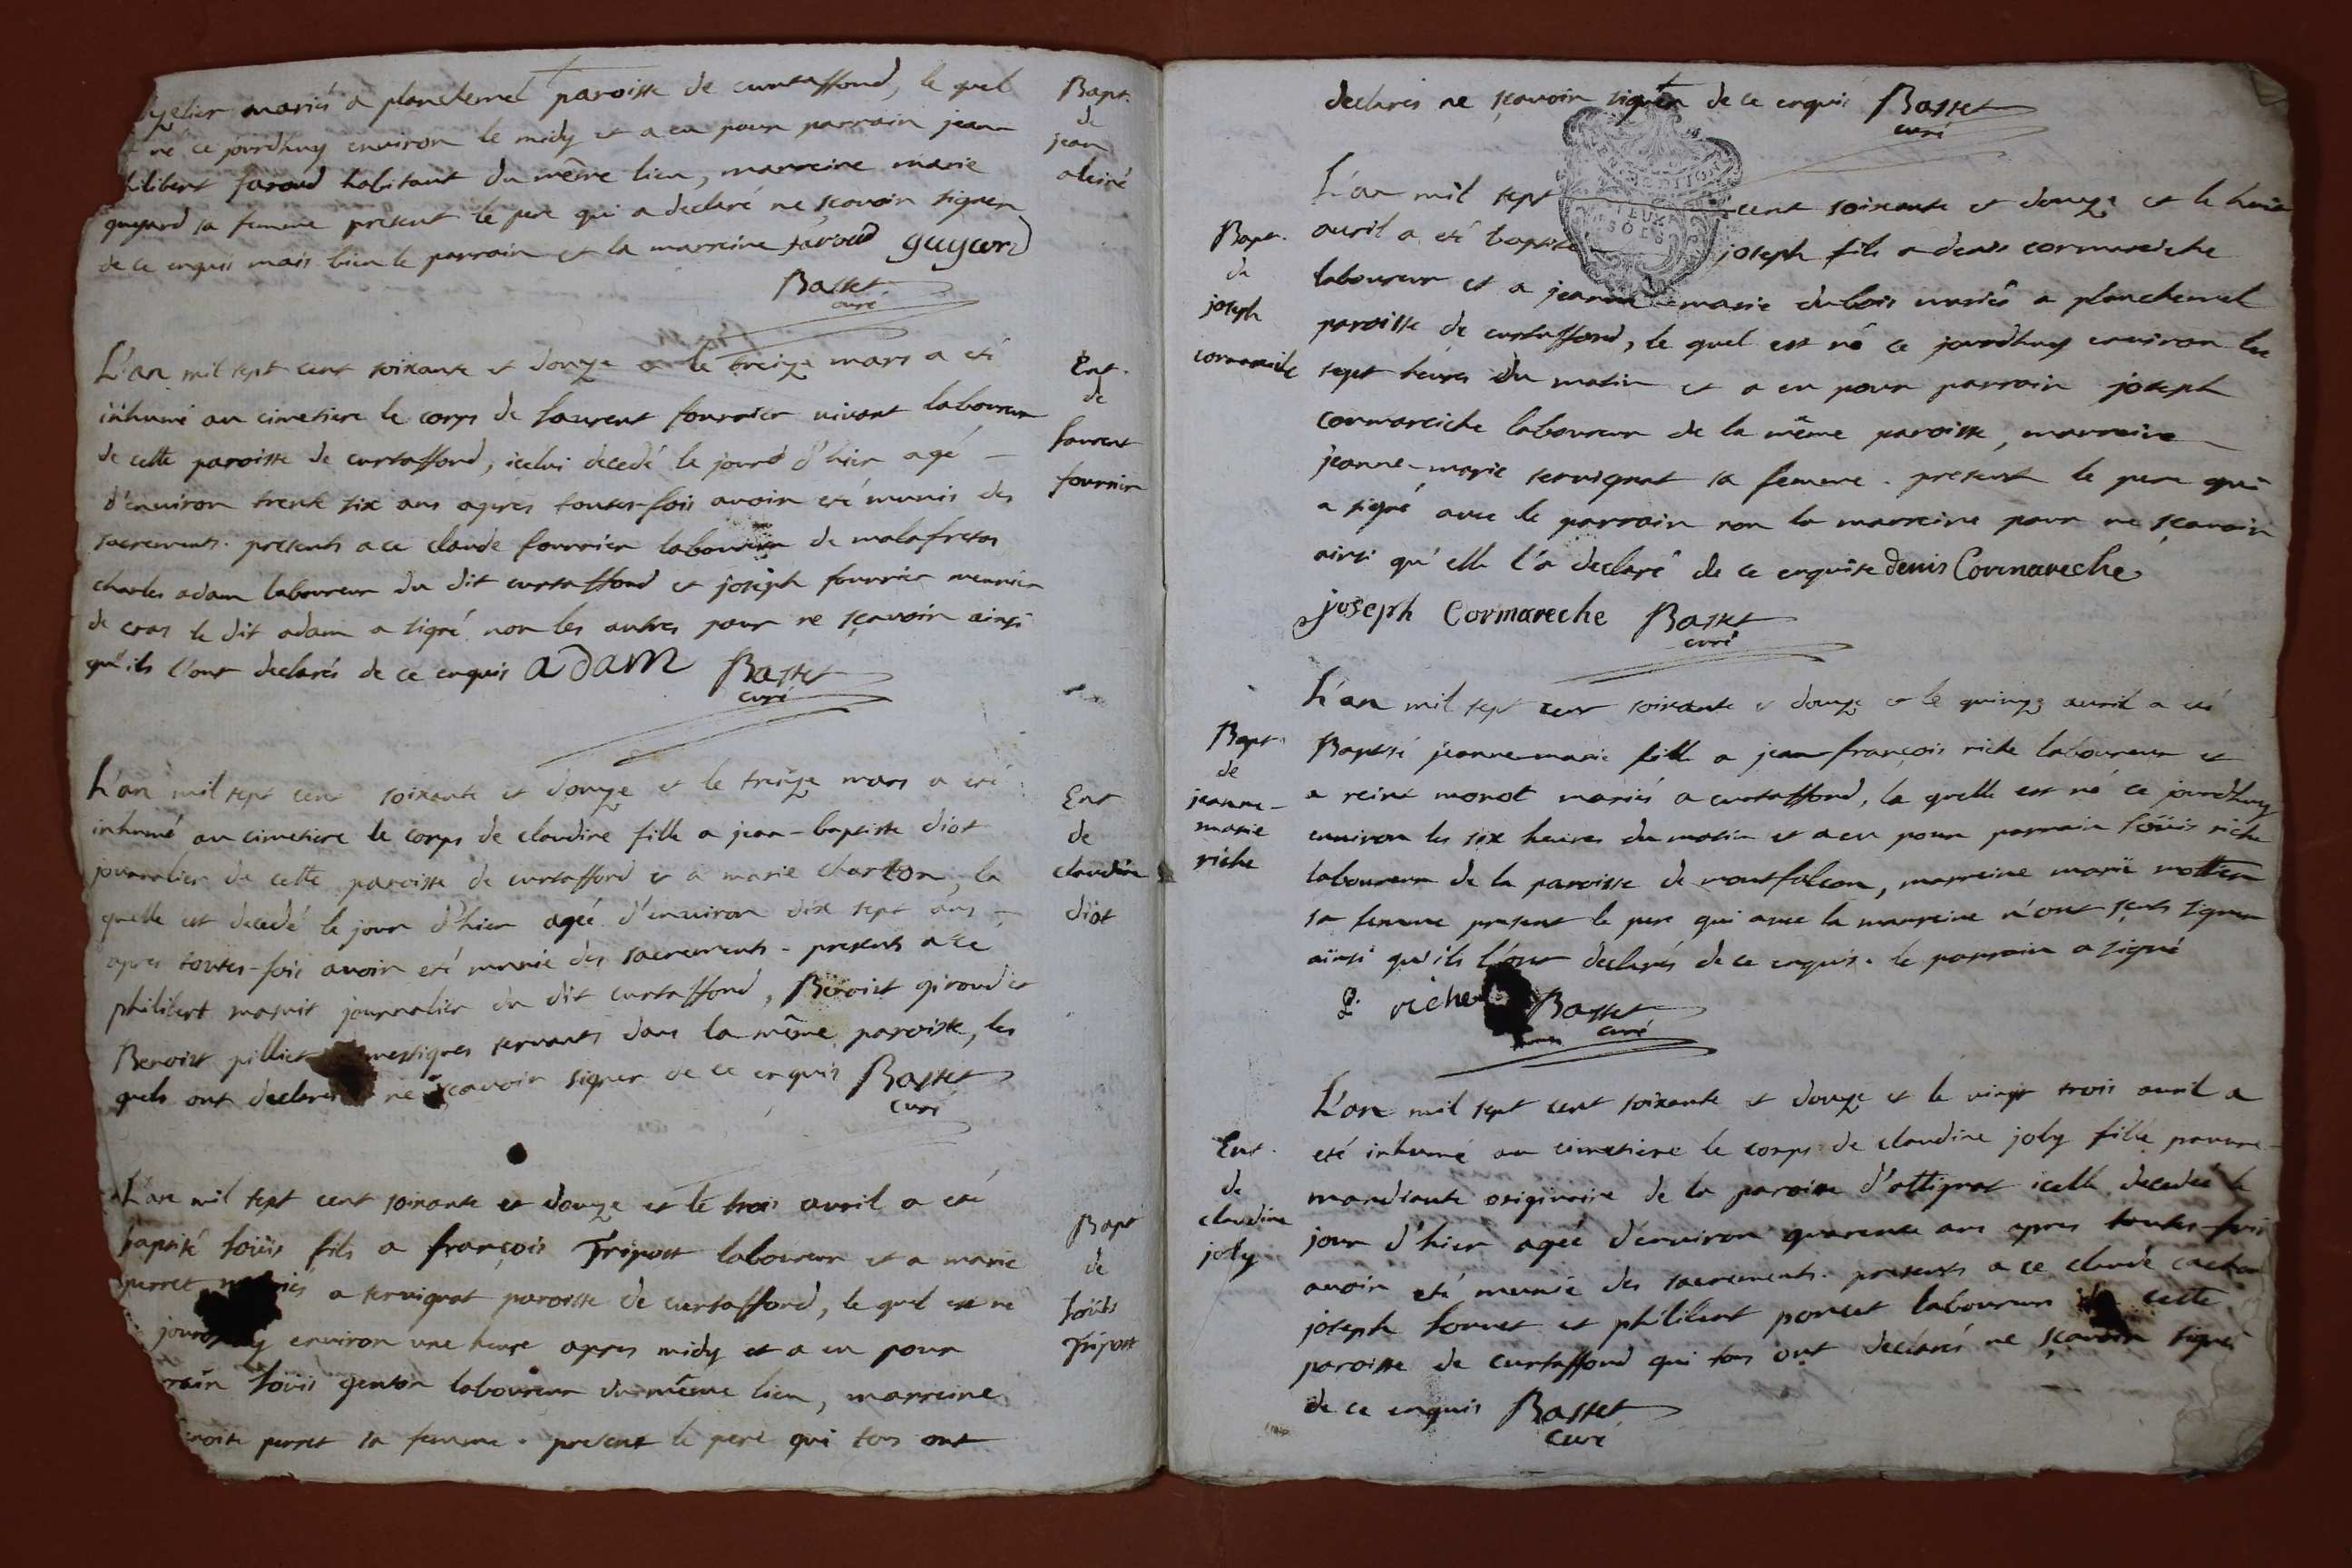 yelier mariés a planchemel paroisse de curtaffond, le quel
né ce jourdhuy environ le midy et a eu pour parrain jean
hilibert favaud habitant du même lieu, marreine marie
guyard sa femme present le pere qui a declaré ne sçavoir signer
de ce enquis mais bien le parrain et la marreine favaud guyard
Basset
curé
Bapt.
de
jean
L'an mil sept cent soixante et douze et le treize mars a eté
inhumé au cimetiere le corps de laurent fournier vivant laboureur
de cette paroisse de curtaffond, icelui decedé le jourd d'hier agé
d'environ trente six ans apres toutes-fois avoir eté munis des
sacrements. presents a ce claude fournier laboureur de malafretas
charles adam laboureur du dit curtaffond et joseph fournier meunier
de cras le dit adam a signé non les autres pour ne sçavoir ainsi
qu'ils l'ont declarés de ce enquis adam Basset
curé
Ent.
de
laurent
fournier
L'an mil sept cent soixante et douze et le treize mars a eté
inhumé au cimetiere le corps de claudine fille a jean-baptiste diot
journalier de cette paroisse de curtaffond et a marie charton, la
quelle est decedé le jour d'hier agée d'environ dix sept ans
apres toutes-fois avoir eté munie des sacrements - presents a ce
philibert masuit journalier du dit curtaffond, Benoist giroud et
Benoist pilliet mestiques servants dans la même paroisse, les
quels ont declarés ne sçavoir signer de ce enquis Basset
curé
Ent
de
claudine
diot
L'an mil sept cent soixante et douze et le trois avril a eté
baptisé loüis fils a françois Tripost laboureur et a marie
perret mariés a servignat paroisse de curtaffond, le quel est né
jourdhuy environ une heure apres midy et a eu pour
rain loüis genton laboureur du même lieu, marreine
enoite perret sa femme. present le pere qui tous ont
Bapt
de
loüis
Tripost
declarés ne sçavoir signer de ce enquis Basset
curé
L'an mil sept cent soixante et douze et le huit
avril a eté baptisé joseph fils a denis cormareiche
laboureur et a jeanne-marie dubois mariés a planchemel
paroisse de curtaffond, le quel est né ce jourdhuy environ les
sept heures du matin et a eu pour parrain joseph
cormareiche laboureur de la même paroisse, marreine
jeanne-marie servignat sa femme. present le pere qui
a signé avec le parrain non la marreine pour ne sçavoir
ainsi qu'elle l'a declaré de ce enquise denis Cormareche
joseph Cormareche Basset
curé
Bapt.
de
joseph
cormareiche
L'an mil sept cent soixante et douze et le quinze avril a eté
Baptisé jeanne-marie fille a jean-françois riche laboureur et
a reine monot mariés a curtaffond, la quelle est né ce jourdhuy
environ les six heures du matin et a eu pour parrain loüis riche
laboureur de la paroisse de montfalcon, marreine marie
sa femme present le pere qui avec la marreine n'ont sçeus signer
ainsi qu'ils l'ont declarés de ce enquis. le parrain a signé
riche Basset
curé
Bapt.
de
jeanne-
marie
riche
L'an mil sept cent soixante et douze et le vingt trois avril a
eté inhumé au cimetiere le corps de claudine joly fille pauvre
mandiante originaire de la paroisse d'attignat icelle decedée le
jour d'hier agée d'environ quarente ans apres toutes-fois
avoir eté munie des sacrements. presents a ce claude cachon
joseph et philibert poncet laboureurs de cette
paroisse de curtaffond qui tous ont declarés ne sçavoir signer
de ce enquis Basset
curé
Ent.
de
claudine
joly